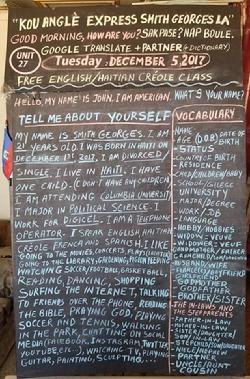 "KOU ANGLÈ EXPRESS SMITH GEORGES LA"
GOOD MORNING, HOW ARE YOU? SAK PASE? NAP BOULE.
UNIT 27
GOOGLE TRANSLATE + PARTNER (+ DICTIONARY)
Tuesday: DECEMBER 5, 2017
FREE ENGLISH/HAITIAN CRÉOLE CLASS
HELLO, MY NAME IS JOHN. I AM AMERICAN. WHAT'S YOUR NAME?
TELL ME ABOUT YOURSELF
MY NAME IS SMITH GEORGES. I AM
21 YEARS OLD. I WAS BORN IN HAITI ON
DECEMBER 1st, 2017. I AM DIVORCED/
SINGLE. I LIVE IN HAITI. I HAVE
ONE CHILD. (I DON'T HAVE ANY CHILDREN)
I AM ATTENDING COLUMBIA UNIVERSITY
I MAJOR IN POLITICAL SCIENCE. I
WORK FOR DIGICEL. I AM A TELEPHONE
OPERATOR. I SPEAK ENGLISH, HAITIAN
CRÉOLE, FRENCH AND SPANISH. I LIKE
GOING TO THE MOVIES, CONCERTS, PLAYS
GOING TO THE LIBRARY, GARDENING,
WATCHING SOCCER/FOOTBALL, BASKETBALL,
READING, DANCING, SHOPPING
SURFING THE INTERNET, TALKING
TO FRIENDS OVER THE PHONE, READING
THE BIBLE, PRAYING GOD, PLAYING
SOCCER AND TENNIS, WALKING
IN THE PARK, CHATTING ON SOCIAL
MEDIA (FACEBOOK, INSTAGRAM, TWITTER,
YOUTUBE, ETC..), WATCHING TV, PLAYING
GUITAR, PAINTING, SCULPTING...
VOCABULARY
NAME
AGE (DOB) DATE OF BIRTH
STATUS
COUNTRY OF BIRTH
RESIDENCE
CHILD/CHILDREN/BABY
SCHOOL/COLLEGE
UNIVERSITY
MAJOR/DEGREE
WORK/JOB
LANGUAGE
HOBBY/HOBBIES
WIDOW
WIDOWER
GODFATHER
GODMOTHER
BROTHER/SISTER
THE IN-LAWS AND
THE STEP PARENTS
FATHER-IN-LAW
MOTHER-IN-LAW
PARTNER
UNCLE/AUNT
COUSIN